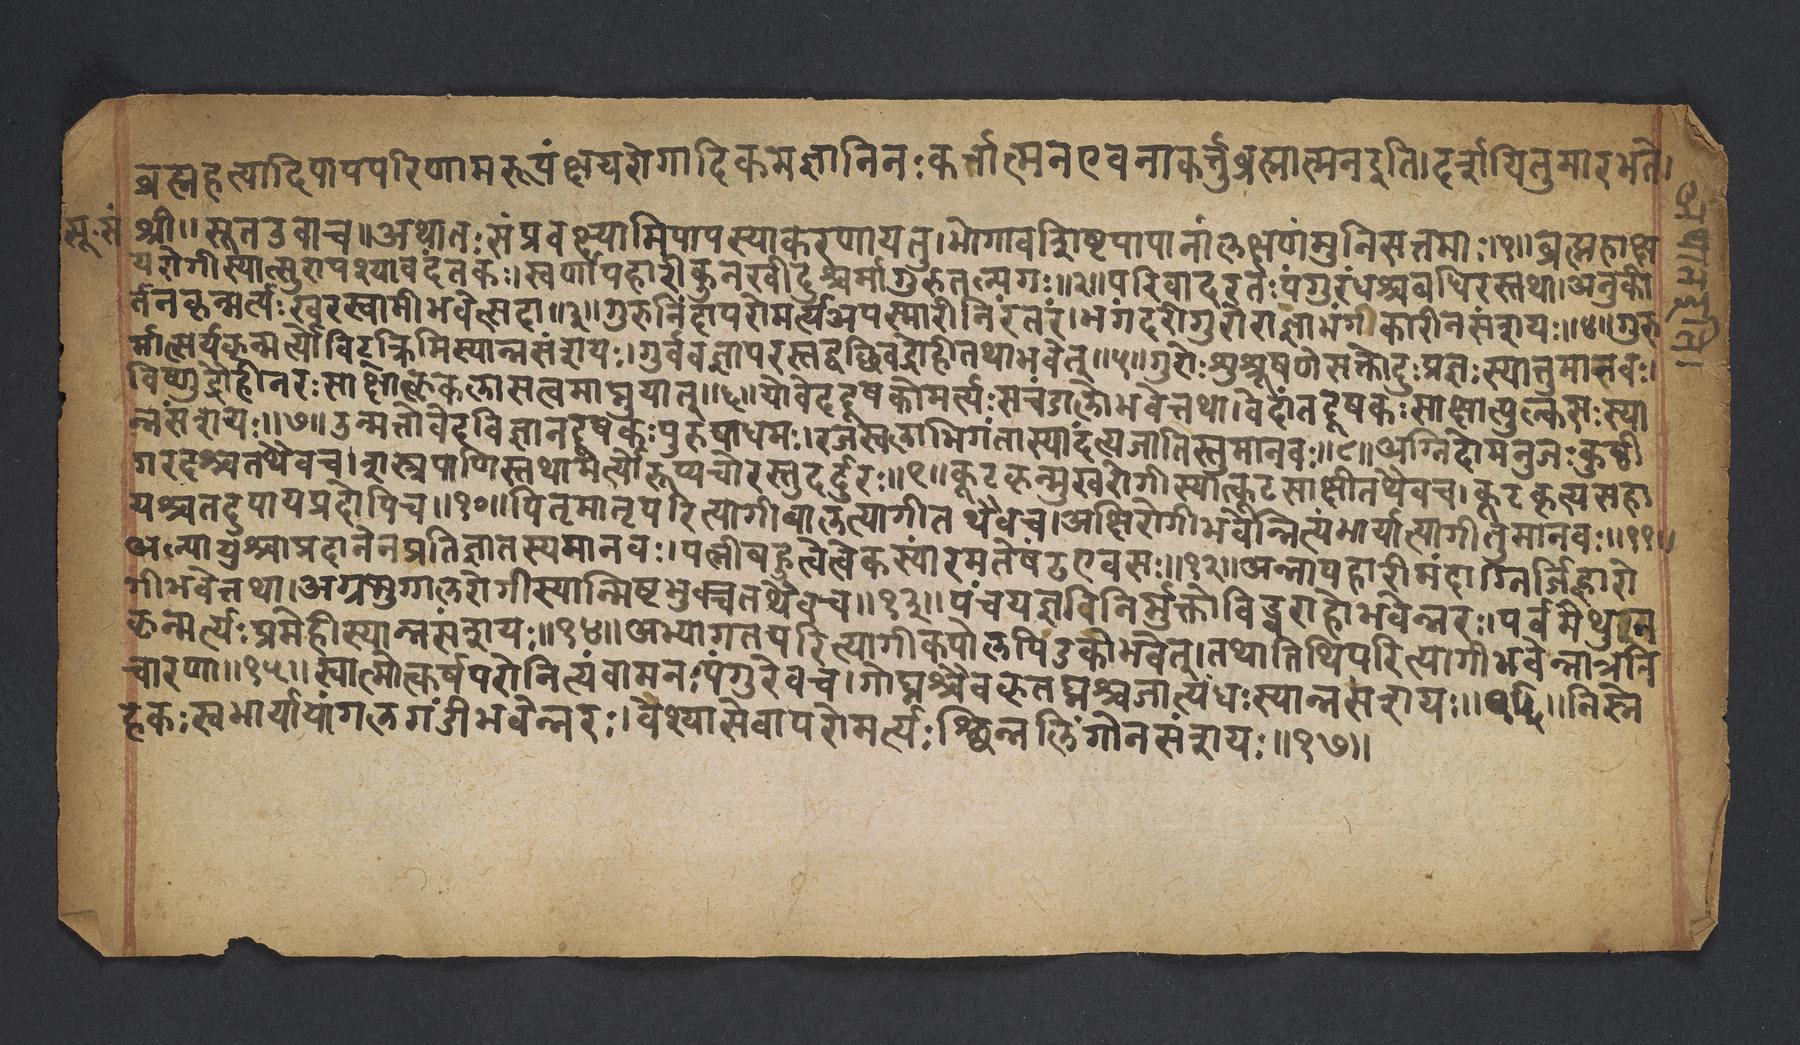 ब्रह्महत्यादिपापपरिणामरूपं क्षयरोगादिकमज्ञानिनः कर्त्तात्मन एव नाकर्त्तुब्रह्मात्मन इति। दर्शयितुमारभते।
सू. सं श्री॥ सूत उवाच॥ अथातः संप्रवक्ष्यामि पापस्याकरणाय तु। भोगावशिष्टपापानां लक्षणं मुनिसत्तमाः॥१॥ ब्रह्महा क्ष
यरोगी स्यात्सुरापश्यावदंतकः। स्वर्णापहारी कुनखी दुश्चर्मा गुरुतल्पगः॥२॥ परिवादरतः पंगुरंधश्च बधिरस्तथा। अनुकी
र्तनकृन्मर्त्यः खरस्वामी भवेत्सदा॥३॥ गुरुनिंदापरो मर्त्य अपस्मारी निरंतरं। भगंदरी गुरोराज्ञाभंगकारी न संशयः॥४॥ गुरु
र्मात्सर्यकृन्मर्त्यो विट्क्रिमि स्यान्न संशयः। गुर्ववज्ञापरस्तद्वच्छिवद्रोही तथा भवेत्॥५॥ गुरोः शुश्रूषणे सक्तो दुःप्रज्ञः स्यात्तु मानवः।
विष्णुद्रोही नरः साक्षात्कृकलासत्वमाप्नुयात्॥६॥ यो वेददूषको मर्त्यः स चंडालो भवेत्तथा। वेदांतदूषकः साक्षात्पुल्कसः स्या
न्न संशयः॥७॥ उन्मत्तो वेदविज्ञानदूषकः पुरुषाधमः। रजस्वलाभिगंता स्यादंत्यजातिस्तु मानवः॥८॥ अग्निदो मनुजः कुष्ठी
गरदश्च तथैव च। शस्त्रपाणिस्तथा मर्त्यो रूप्यचोरस्तु दर्दुरः॥९॥ कूटकृन्मुखरोगी स्यात्कूटसाक्षी तथैव च। कूटकृत्यसहा
यश्च तदुपायप्रदोपि च॥१०॥ पितृमातृपरित्यागी बालत्यागी तथैव च। अक्षिरोगी भवेन्नित्यं भार्यात्यागी तु मानवः॥११॥
कन्यायाश्चाप्रदानेन प्रतिज्ञातस्य मानवः। पत्नीबहुत्वे त्वेकस्यां रमते षंढ एव सः॥१२॥ अन्नापहारी मंदाग्निर्जिह्वारो
गी भवेत्तथा। अग्रभुग्गलरोगी स्यान्मिष्टभुक्च तथैव च॥१३॥ पंचयज्ञविनिर्मुक्तो विड्वराहो भवेन्नरः। पर्वमैथुन
कृन्मर्त्यः प्रमेही स्यान्न संशयः॥१४॥ अभ्यागतपरित्यागी कपोलपिडको भवेत्। तथातिथिपरित्यागी भवेन्नात्र वि
चारणा॥१५॥ स्वात्मोत्कर्षपरो नित्यं वामनः पंगुरेव च। गोघ्नश्चैव कृतघ्नश्च जात्यंधः स्यान्न संशयः॥१६॥ निस्ने
हकः स्वभार्यायां गलगंडी भवेन्नरः। वेश्यासेवापरो मर्त्यः श्छिन्नलिंगो न संशयः॥१७॥